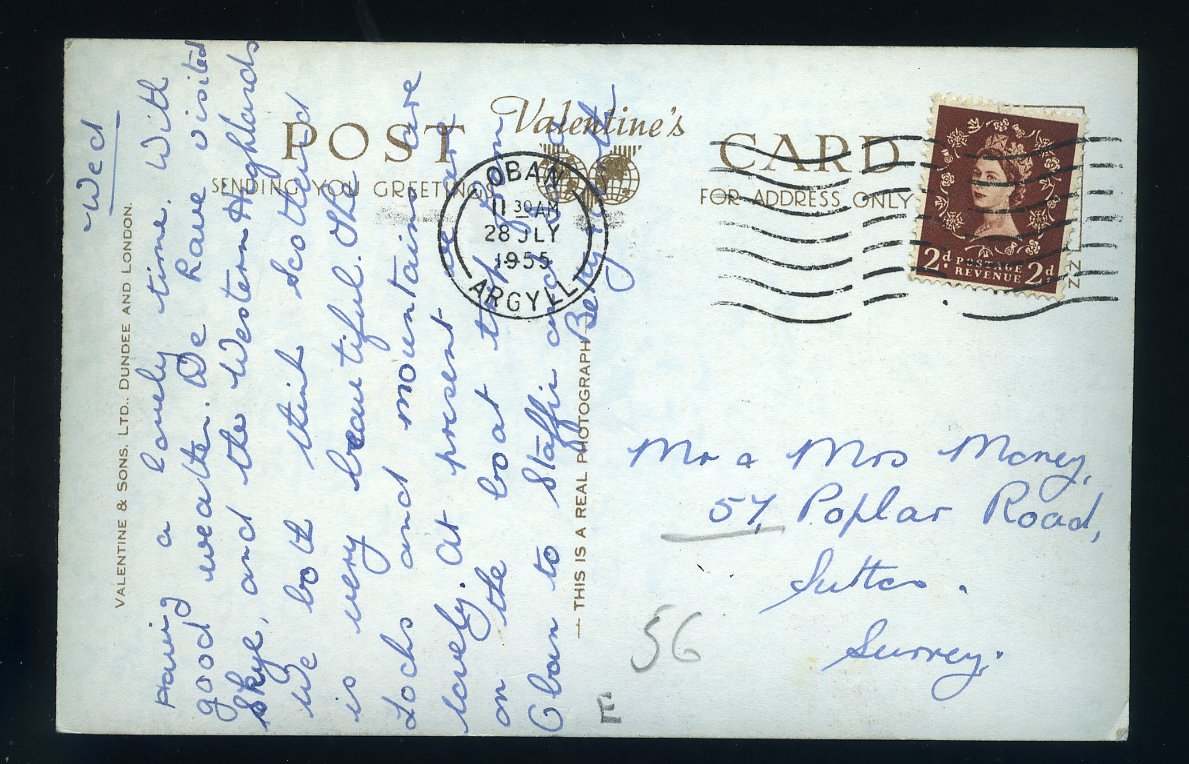 Valentine's
POST CARD
SENDING YOU GREETINGS
FOR ADDRESS ONLY
OBAN
11 30 AM
28 JLY
1955
ARGYLL
2d POSTAGE REVENUE 2d
VALENTINE & SONS, LTD., DUNDEE AND LONDON.
THIS IS A REAL PHOTOGRAPH
Wed
Having a lovely time. With
good weather. We have visited
Skye, and the Western Highlands
We both think Scotland
is very beautiful. The
Lochs and mountains are
lovely. At present we are
on the boat trip from
Oban to Staffa and
Betty
Mr & Mrs
57 Poplar Road,
Sutton.
Surrey.
56
F